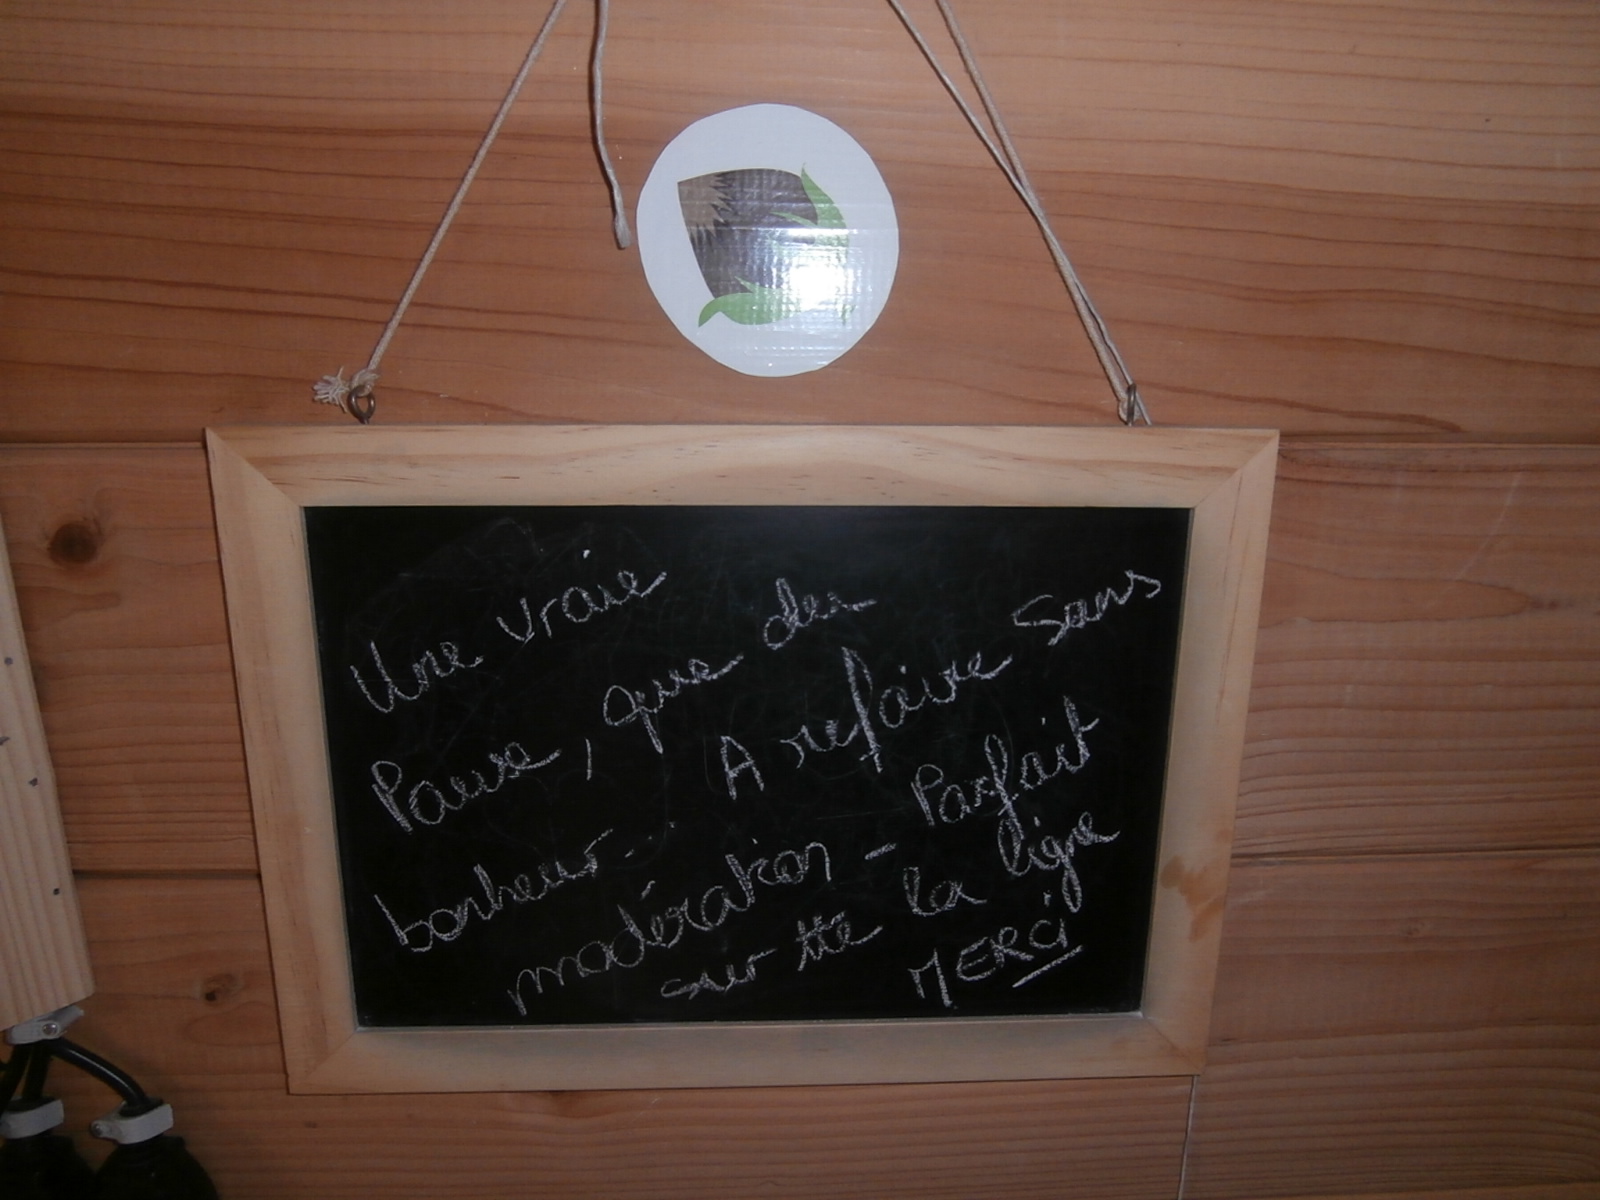 Une vraie
Pause, que du
bonheur... A refaire sans
modération - Parfait
sur tte la ligne
MERCI